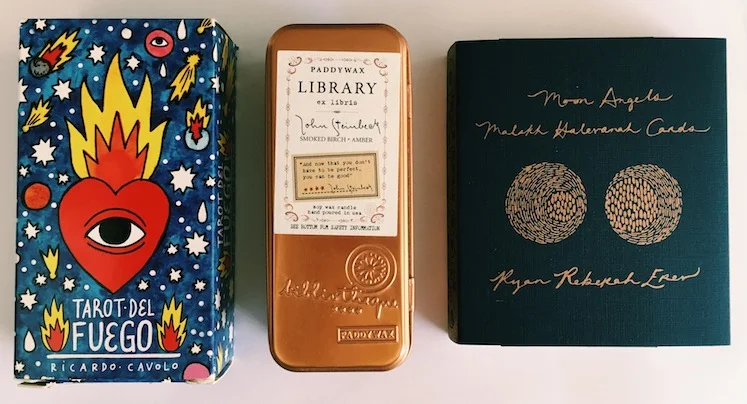 TAROT·DEL
FUEGO
RICARDO·CAVOLO
TAROT·DEL
FUEGO
PADDYWAX
LIBRARY
ex libris
John Steinbeck
SMOKED BIRCH + AMBER
"And now that you don't
have to be perfect,
you can be good"
John Steinbeck
soy wax candle
hand poured in usa
SEE BOTTOM FOR SAFETY INFORMATION
bibliotheque
PADDYWAX
Moon Angels
Malakh Halevanah Cards
Ryan Rebekah Erev